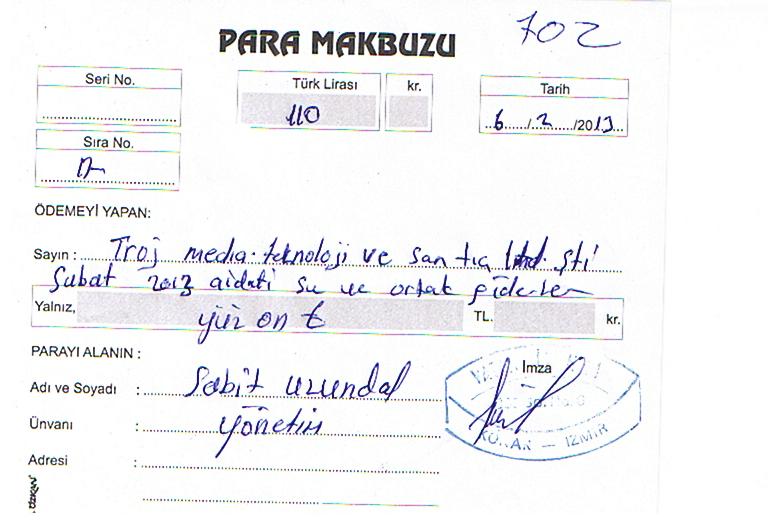 702
PARA MAKBUZU
Seri No.
Türk Lirası
kr.
110
Tarih
6/2/2013
Sıra No.
ÖDEMEYİ YAPAN:
Sayın : Troj media teknoloji ve san tic ltd. şti
Şubat 2013 aidatı su ve ortak giderler
Yalnız, yüz on ₺ TL. kr.
PARAYI ALANIN :
Adı ve Soyadı : Sabit uzundal
İmza
Ünvanı : yönetim
KONAK — İZMİR
Adresi :